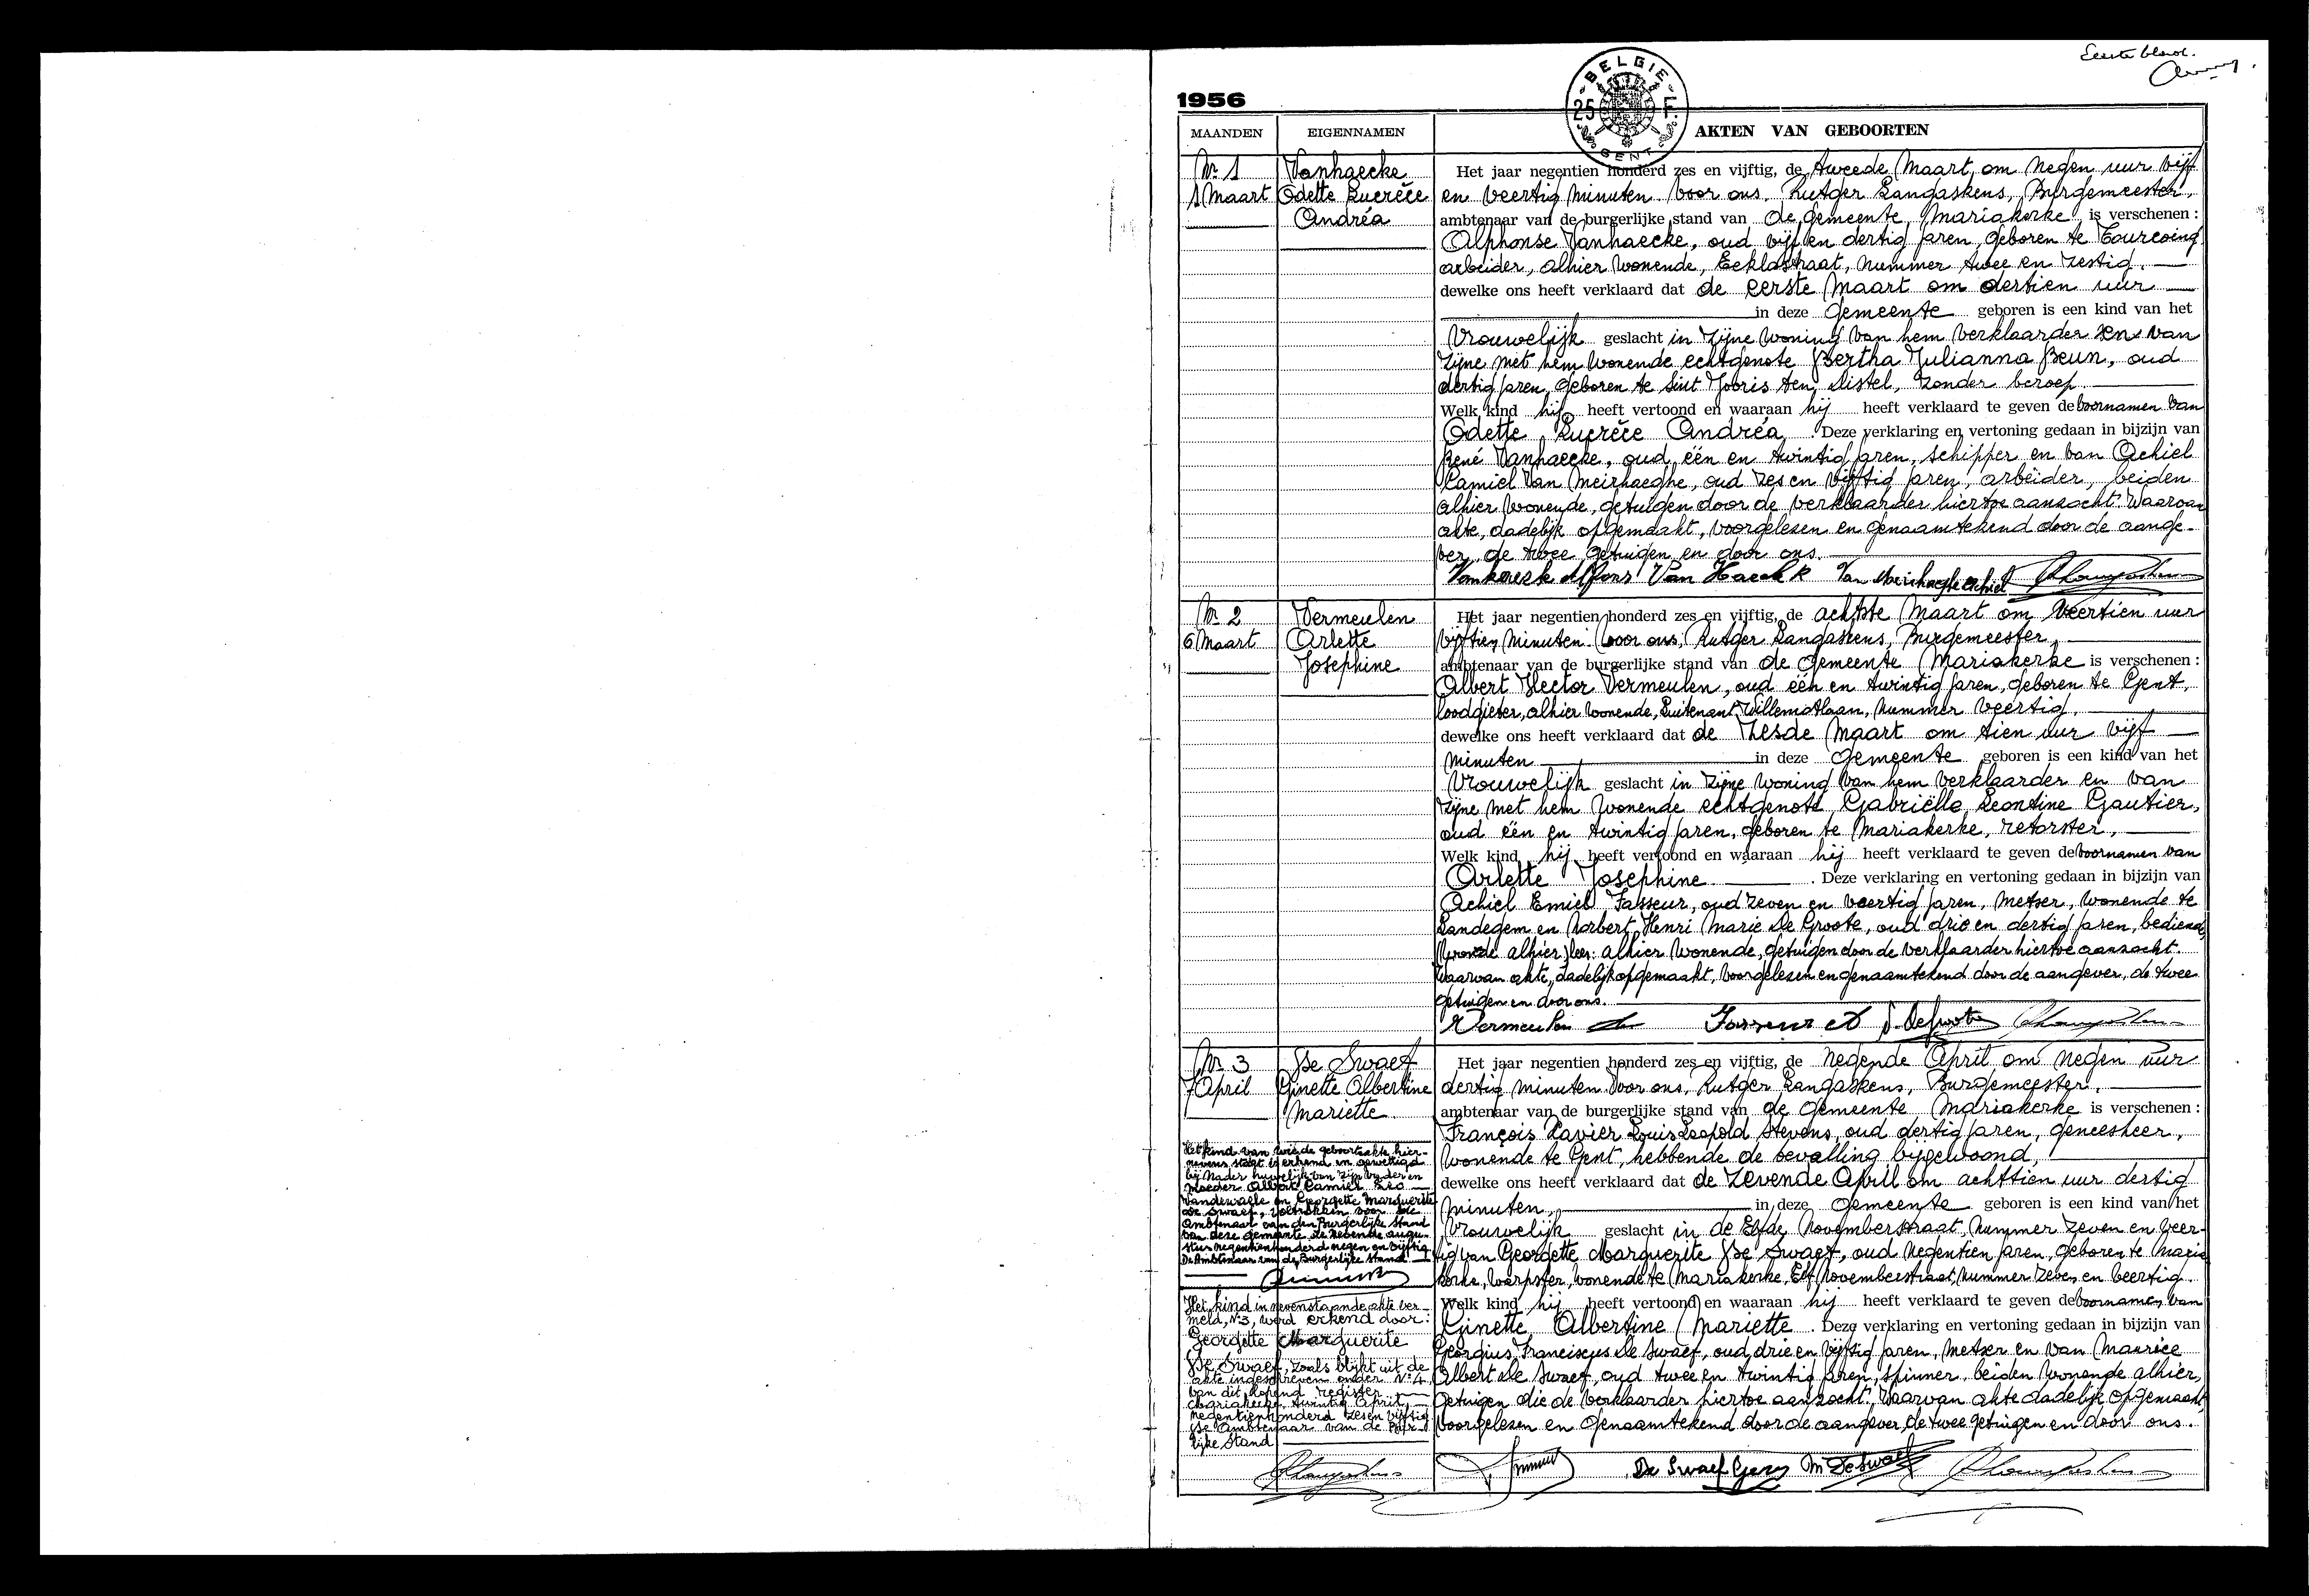 Eerste blad.
1956
BELGIE
25 F.
GENT
MAANDEN
EIGENNAMEN
AKTEN VAN GEBOORTEN
Nr 1
1 Maart
Vanhaecke
Odette Lucrèce
Andréa
Het jaar negentien honderd zes en vijftig, de tweede Maart om negen uur vijf
en veertig minuten voor ons, Rutger Langaskens, Burgemeester,
ambtenaar van de burgerlijke stand van de gemeente Mariakerke is verschenen :
Alphonse Vanhaecke, oud vijf en dertig jaren, geboren te Tourcoing
arbeider, alhier wonende, Eeklostraat, nummer twee en zestig.
dewelke ons heeft verklaard dat de eerste Maart om dertien uur
in deze gemeente geboren is een kind van het
vrouwelijk geslacht in zijne woning van hem verklaarder en van
zijne met hem wonende echtgenote Bertha Julianna Beun, oud
dertig jaren, geboren te Sint Jooris ten Distel, zonder beroep.
Welk kind hij heeft vertoond en waaraan hij heeft verklaard te geven de voornamen van
Odette Lucrèce Andréa . Deze verklaring en vertoning gedaan in bijzijn van
René Vanhaecke, oud één en twintig jaren, schipper en van Achiel
Camiel Van Meirhaeghe, oud zes en vijftig jaren, arbeider, beiden
alhier wonende, getuigen door de verklaarder hiertoe aanzocht. Waarvan
akte, dadelijk opgemaakt, voorgelezen en genaamtekend door de aange-
ver, de twee getuigen en door ons.
Vanhaecke Alfons Van Haeck R Van Meirhaeghe Achiel
Nr 2
6 Maart
Vermeulen
Arlette
Josephine
Het jaar negentien honderd zes en vijftig, de achtste Maart om veertien uur
vijftien minuten voor ons, Rutger Langaskens, Burgemeester,
ambtenaar van de burgerlijke stand van de gemeente Mariakerke is verschenen :
Albert Hector Vermeulen, oud één en twintig jaren, geboren te Gent,
loodgieter, alhier wonende, Luitenant Willemotlaan, nummer veertig.
dewelke ons heeft verklaard dat de zesde Maart om tien uur vijf
minuten in deze gemeente geboren is een kind van het
vrouwelijk geslacht in zijne woning van hem verklaarder en van
zijne met hem wonende echtgenote Gabriëlle Leontine Gautier,
oud één en twintig jaren, geboren te Mariakerke, retorster,
Welk kind hij heeft vertoond en waaraan hij heeft verklaard te geven de voornamen van
Arlette Josephine . Deze verklaring en vertoning gedaan in bijzijn van
Achiel Emiel Fasseur, oud zeven en veertig jaren, metser, wonende te
Landegem en Norbert Henri Marie De Groote, oud drie en dertig jaren, bediende,
alhier) lees: alhier wonende, getuigen door de verklaarder hiertoe aanzocht.
Waarvan akte, dadelijk opgemaakt, voorgelezen en genaamtekend door de aangever, de twee
getuigen en door ons.
Vermeulen
Nr 3
7 April
De Swaef
Ginette Albertine
Mariette
Het jaar negentien honderd zes en vijftig, de negende April om negen uur
dertig minuten voor ons, Rutger Langaskens, Burgemeester,
ambtenaar van de burgerlijke stand van de gemeente Mariakerke is verschenen :
François Xavier Louis Leopold Stevens, oud dertig jaren, geneesheer,
wonende te Gent, hebbende de bevalling bijgewoond,
dewelke ons heeft verklaard dat de zevende April om achttien uur dertig
minuten, in deze gemeente geboren is een kind van het
vrouwelijk geslacht in de Elfde Novemberstraat, nummer zeven en veer-
tig van Georgette Marguerite De Swaef, oud negentien jaren, geboren te Maria
kerke, warpster, wonende te Mariakerke, Elf Novemberstraat, nummer zeven en veertig.
Welk kind hij heeft vertoond en waaraan hij heeft verklaard te geven de voornamen van
Ginette Albertine Mariette . Deze verklaring en vertoning gedaan in bijzijn van
Georgius Franciscus De Swaef, oud drie en vijftig jaren, metser en van Maurice
Albert De Swaef, oud twee en twintig jaren, spinner, beiden wonende alhier,
getuigen die de verklaarder hiertoe aanzocht. Waarvan akte dadelijk opgemaakt,
voorgelezen en genaamtekend door de aangever, de twee getuigen en door ons.
De Swaef Georg M De Swaef
Het kind van wie de geboorteakte hier-
nevens staat is erkend en gewettigd
bij nader huwelijk van zijn vader en
moeder Albert Camiel Leo
Vandewalle en Georgette Marguerite
De Swaef, voltrokken voor de
Ambtenaar van den Burgerlijke Stand
van deze gemeente de negende augu-
stus negentienhonderd negen en vijftig
De Ambtenaar van de Burgerlijke Stand
Het kind in nevenstaande akte ver-
meld, Nr 3, werd erkend door:
Georgette Marguerite
De Swaef, zoals blijkt uit de
akte ingeschreven onder Nr 4
van dit lopend register.
Mariakerke, twintig April,
negentienhonderd zes en vijftig
De Ambtenaar van de Burger-
lijke Stand